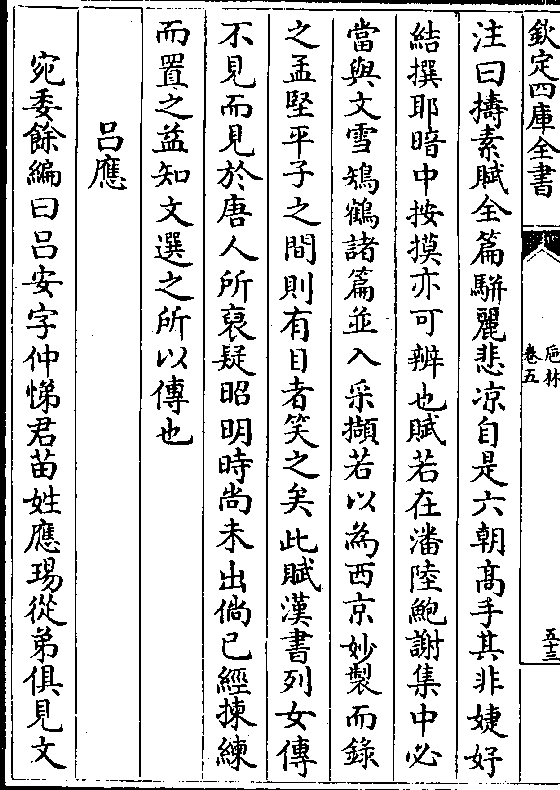 欽定四庫全書
巵林
卷五
五十三
注曰擣素賦全篇駢麗悲凉自是六朝髙手其非婕妤
結撰耶暗中按摸亦可辨也賦若在潘陸鮑謝集中必
當與文雪鵷鶴諸篇並入采擷若以為西京妙製而錄
之孟堅平子之間則有目者笑之矣此賦漢書列女傳
不見而見於唐人所裒疑昭明時尚未出倘已經揀練
而置之益知文選之所以傳也
吕應
宛委餘編曰吕安字仲悌君苗姓應瑒從弟俱見文